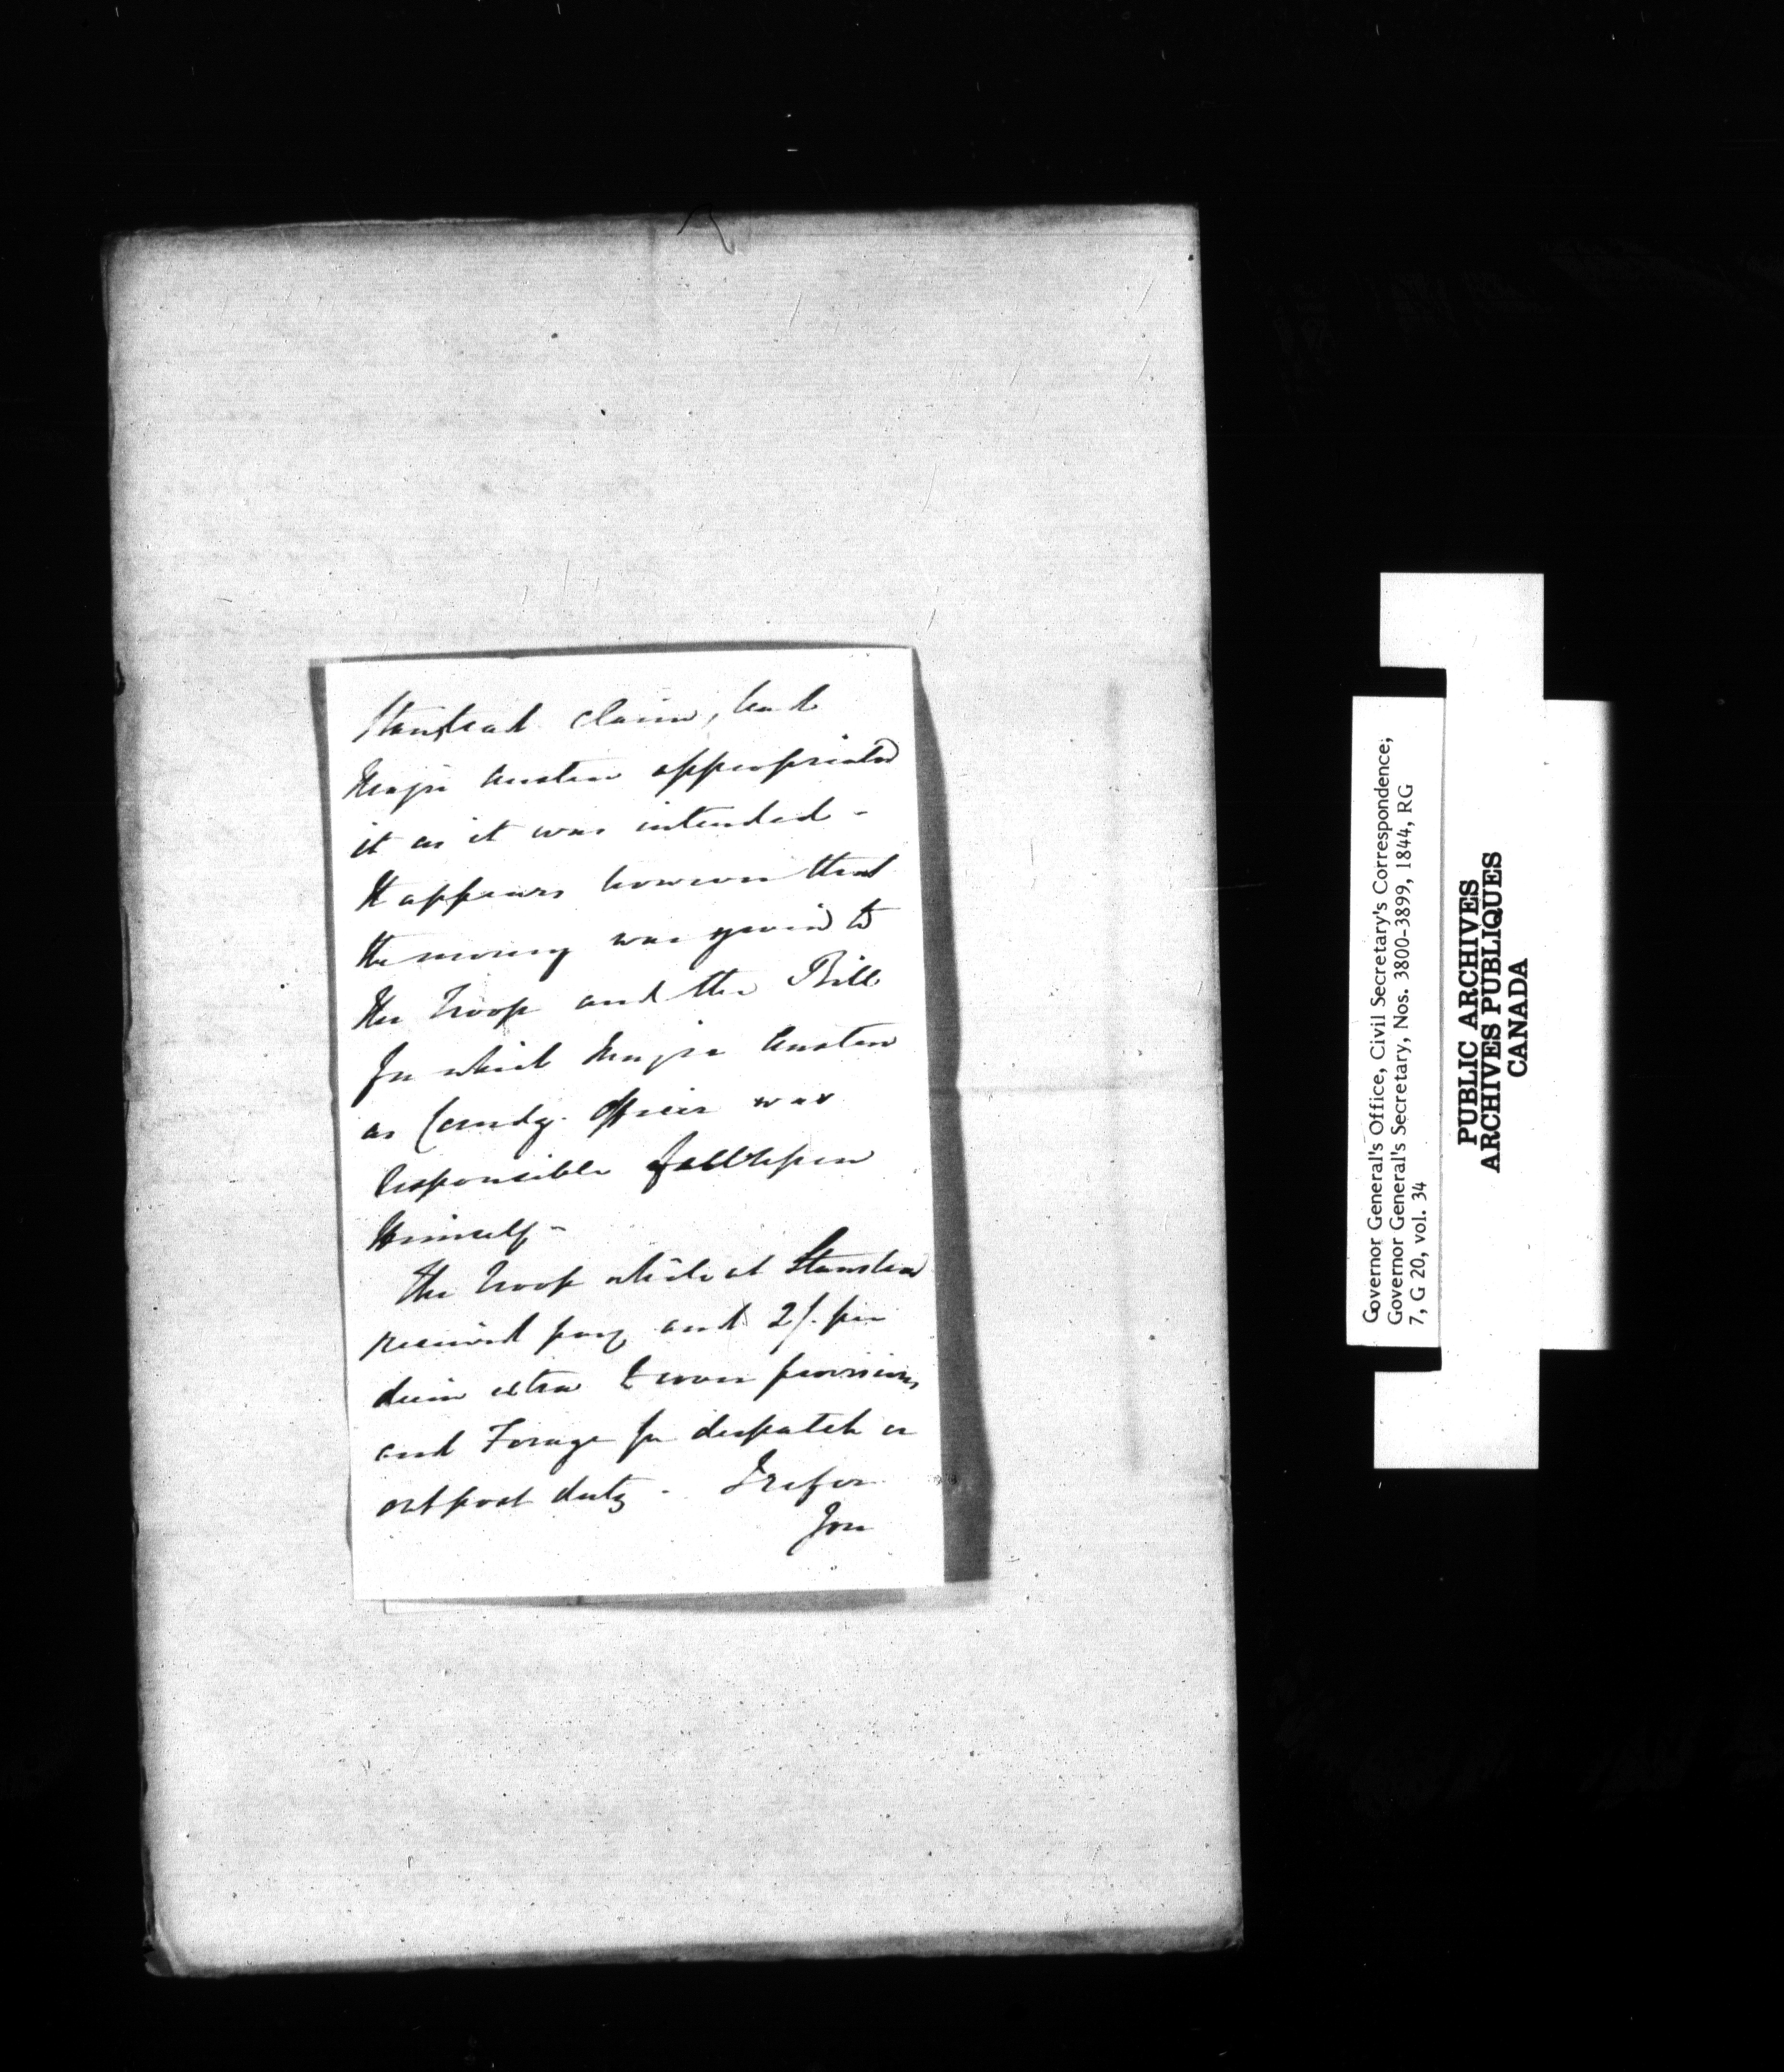 Stanstead claim, had
Major Austin appropriated
it as it was intended -
It appears however that
the money was given to
the Troop and the Bill
for which Major Austin
as Comdg. Officer was
responsible fell upon
himself -
The Troop while at Stanstead
received pay and 2/. per
diem extra & even provisions
and Forage for despatch or
outpost duty - I refer
You
Governor General's Office, Civil Secretary's Correspondence;
Governor General's Secretary, Nos. 3800-3899, 1844, RG
7, G 20, vol. 34
PUBLIC ARCHIVES
ARCHIVES PUBLIQUES
CANADA